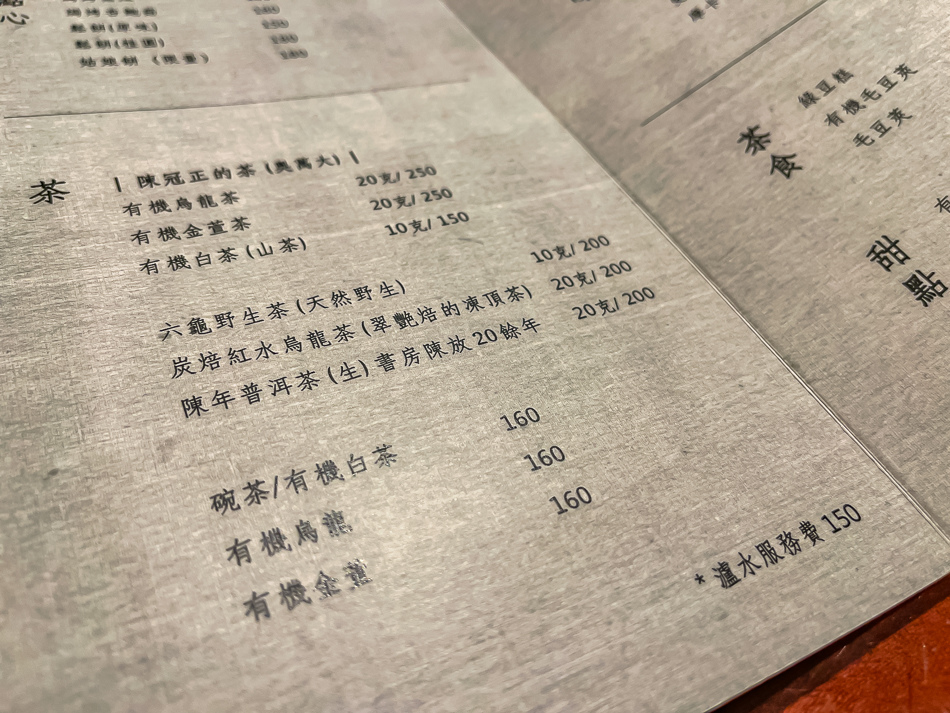 點心
鬆餅(原味)
鬆餅(桂圓)
茶
| 陳冠正的茶 (奧萬大) |
有機烏龍茶 20克/ 250
有機金萱茶 20克/ 250
有機白茶 (山茶) 10克/ 150
六龜野生茶 (天然野生) 10克/ 200
炭焙紅水烏龍茶 (翠艷焙的凍頂茶) 20克/ 200
陳年普洱茶 (生) 書房陳放 20 餘年 20克/ 200
碗茶/有機白茶 160
有機烏龍 160
有機金萱 160
* 瀘水服務費 150
茶食
綠豆糕
有機毛豆莢
毛豆莢
甜點
有